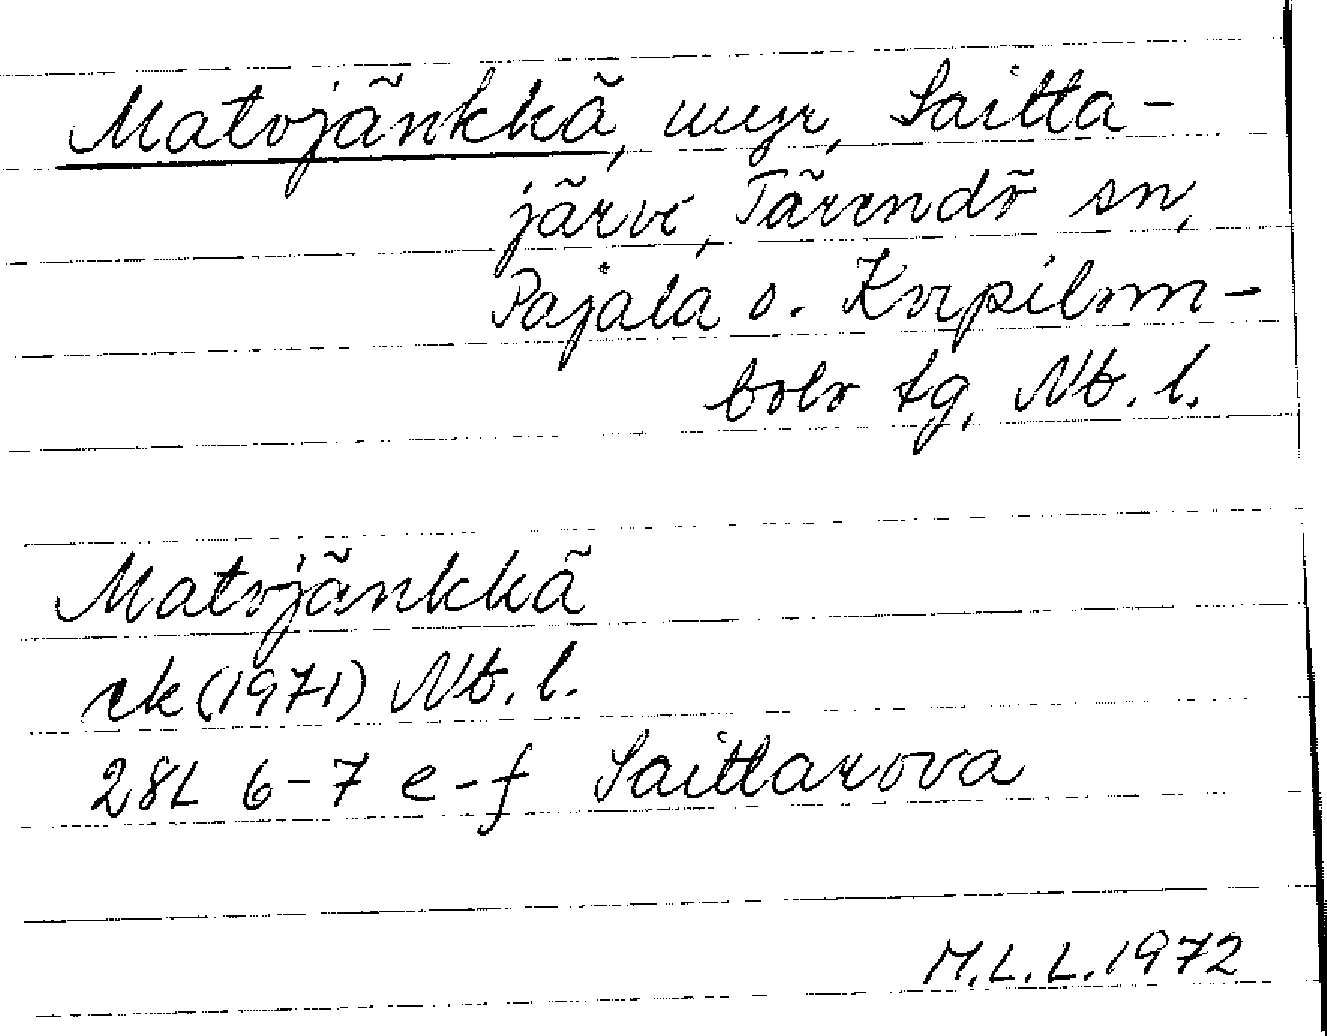 Matojänkkä, myr, Saitta-
järvi, Tärendö sn,
Pajala o. Korpilom-
bolo tg, Nb. l.
Matojänkkä
ek (1971) Nb. l.
28L 6-7 e-f Saittarova
M.L.L. 1972